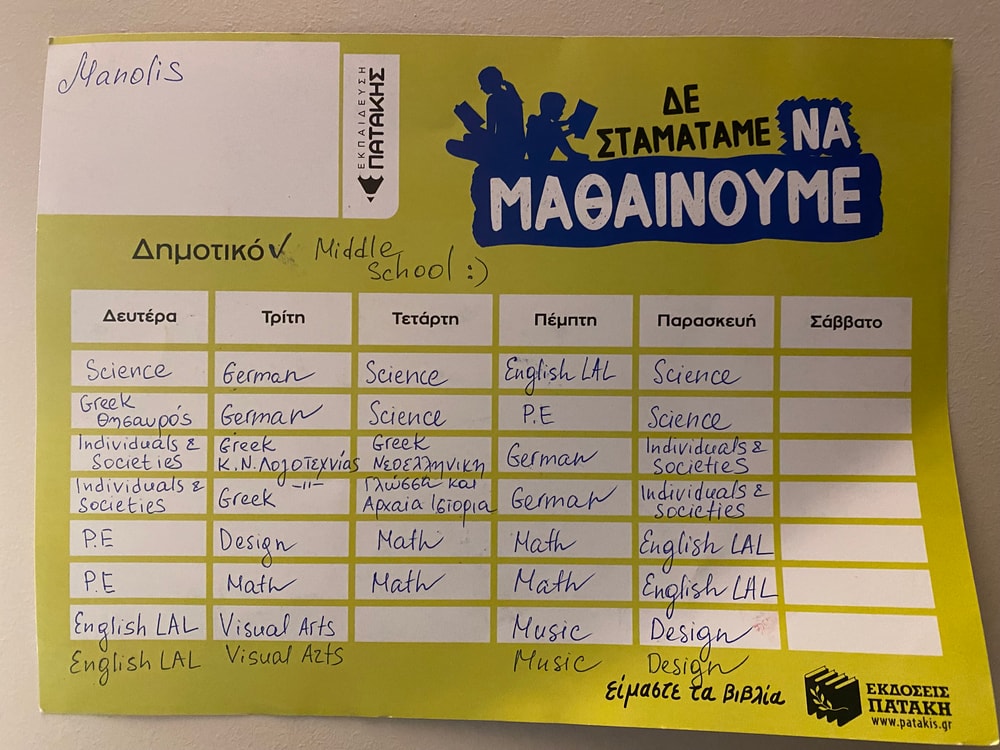 Manolis
ΕΚΠΑΙΔΕΥΣΗ
ΠΑΤΑΚΗΣ
ΔΕ
ΣΤΑΜΑΤΑΜΕ ΝΑ
ΜΑΘΑΙΝΟΥΜΕ
Δημοτικό ✓ Middle
School :)
Δευτέρα Τρίτη Τετάρτη Πέμπτη Παρασκευή Σάββατο
Science German Science English LAL Science
Greek
Θησαυρός German Science P.E Science
Individuals & Greek Greek German Individuals &
Societies Κ.Ν.Λογοτεχνίας Νεοελληνική Societies
Individuals & Greek -||- Γλώσσα και German Individuals &
Societies Αρχαία Ιστορία Societies
P.E Design Math Math English LAL
P.E Math Math Math English LAL
English LAL Visual Arts Music Design
English LAL Visual Arts Music Design
είμαστε τα βιβλία
ΕΚΔΟΣΕΙΣ
ΠΑΤΑΚΗ
www.patakis.gr